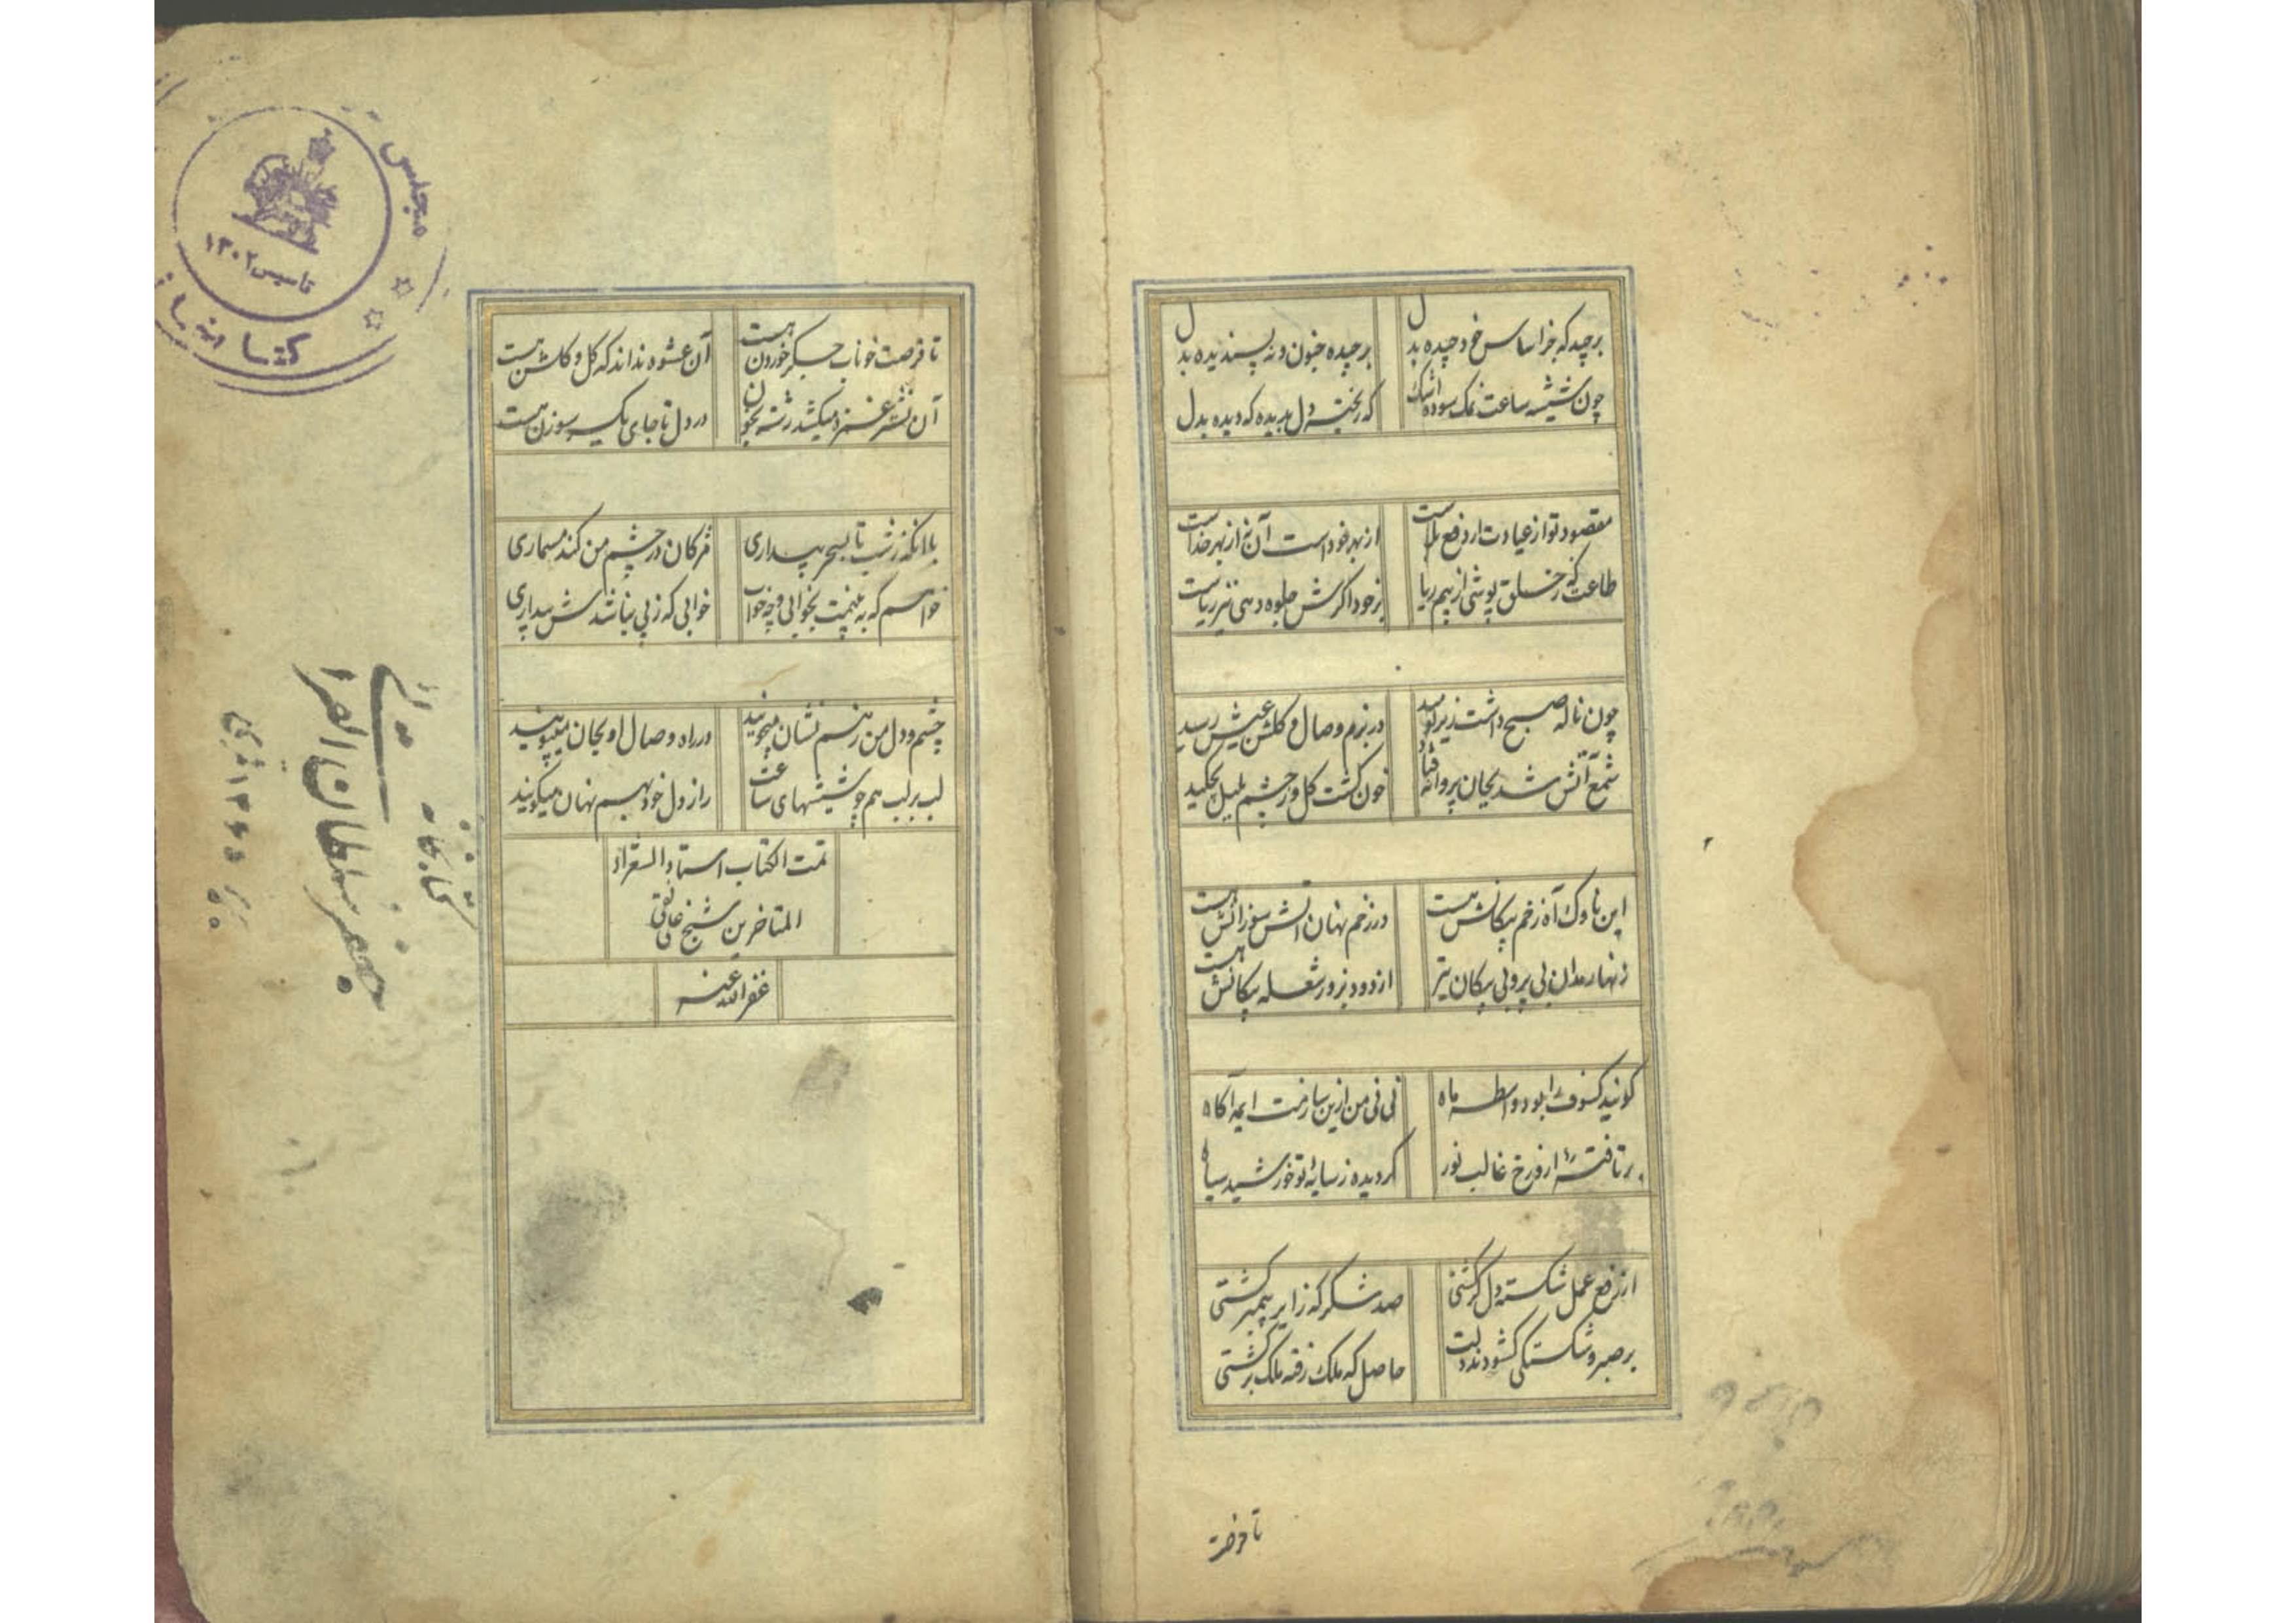 برچید که جز اساس خود چیده بدل
برچیده جنون و نه پسندیده بدل
چون شیشه ساعت نمک سوده اشک
که ریخته دل بدیده که دیده بدل
مقصود تو از عبادت ار دفع بلاست
از بهر خود است آن نه از بهر خداست
طاعت که ز خلق پوشی از بیم ریا
بر خود اگرش جلوه دهی نیز ریاست
چون ناله صبح داشت زیر لوید
در بزم وصال و گلشن عیش رسید
شمع آتش شد بجان پروانه فتاد
خون گشت گل و ز چشم بلبل بچکید
این ناوک آه زخم پیکانش هست
در زخم نهان آتش سوزانش هست
زنهار مدان بی پر و بی پیکان تیر
از دود پر و ز شعله پیکانش هست
گویند کسوف را بود واسطه ماه
نی نی من ازین سازمت ایمه آگاه
بر تافته ازو رخ غالب نور
گردیده ز سایه تو خورشید سیاه
از رفع عمل شکسته دل گر گشتی
صد شکر که زایر پیمبر گشتی
بر صبر و شکستگی گشودند دلت
حاصل که ملک رفته ملک برگشتی
تا فرصت
تا فرصت خوناب جگر خوردن هست
آن عشوه نداند که گل و گلشن هست
آن نشتر غمزه میکشد رشته بخون
در دل تا جای یک سر سوزن هست
با آنکه ز شب تا بسحر بیداری
مژگان در چشم من کند مسماری
خواهم که به بینمت بخوابی و چه خواب
خوابی که ز پی نباشدش بیداری
چشم و دل من ز هم نشان میجویند
در راه وصال او بجان میپویند
لب بر لب هم چو شیشهای ساعت
راز دل خود بهم نهان میگویند
تمت الکتاب استاد الشعراء
المتاخرین شیخ علی نقی
غفر الله عنه
مجلس
کتابخانه
تاسیس ۱۳۰۲
کتابخانه
جعفر سلطان القرائی